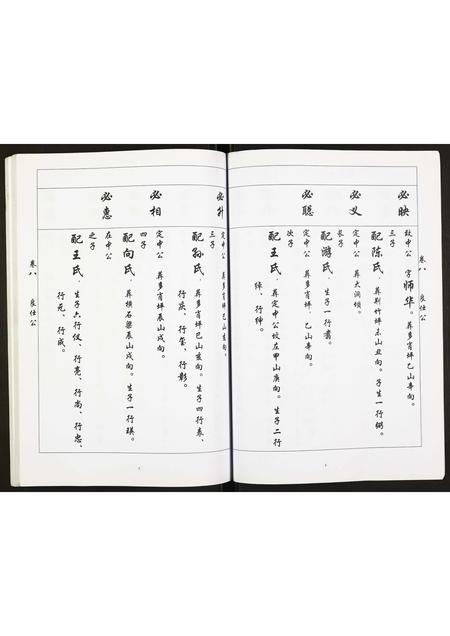 卷八 良仕公
必映
故中公
三子
字师华。葬多肖坪乙山辛向。
配陈氏，葬荆竹坪未山丑向。子生一行弼。
必义
定中公
长子
葬大洞坝。
配游氏，生子一行翥。
必聪
定中公
次子
葬多肖坪，乙山辛向。
配王氏，葬定中公坟左甲山庚向。生子二行
绰、行绅。
必升
定中公
三子
葬多肖坪巳山亥向。
配孙氏，葬多肖坪巳山亥向。生子四行泰、
行庆、行玺、行彰。
必相
定中公
四子
葬多肖坪辰山戌向。
配向氏，葬横石梁辰山戌向。生子一行瑛。
必惠
在中公
之子
配王氏，生子六行仪、行亮、行尚、行忠、
行元、行成。
卷八 良仕公